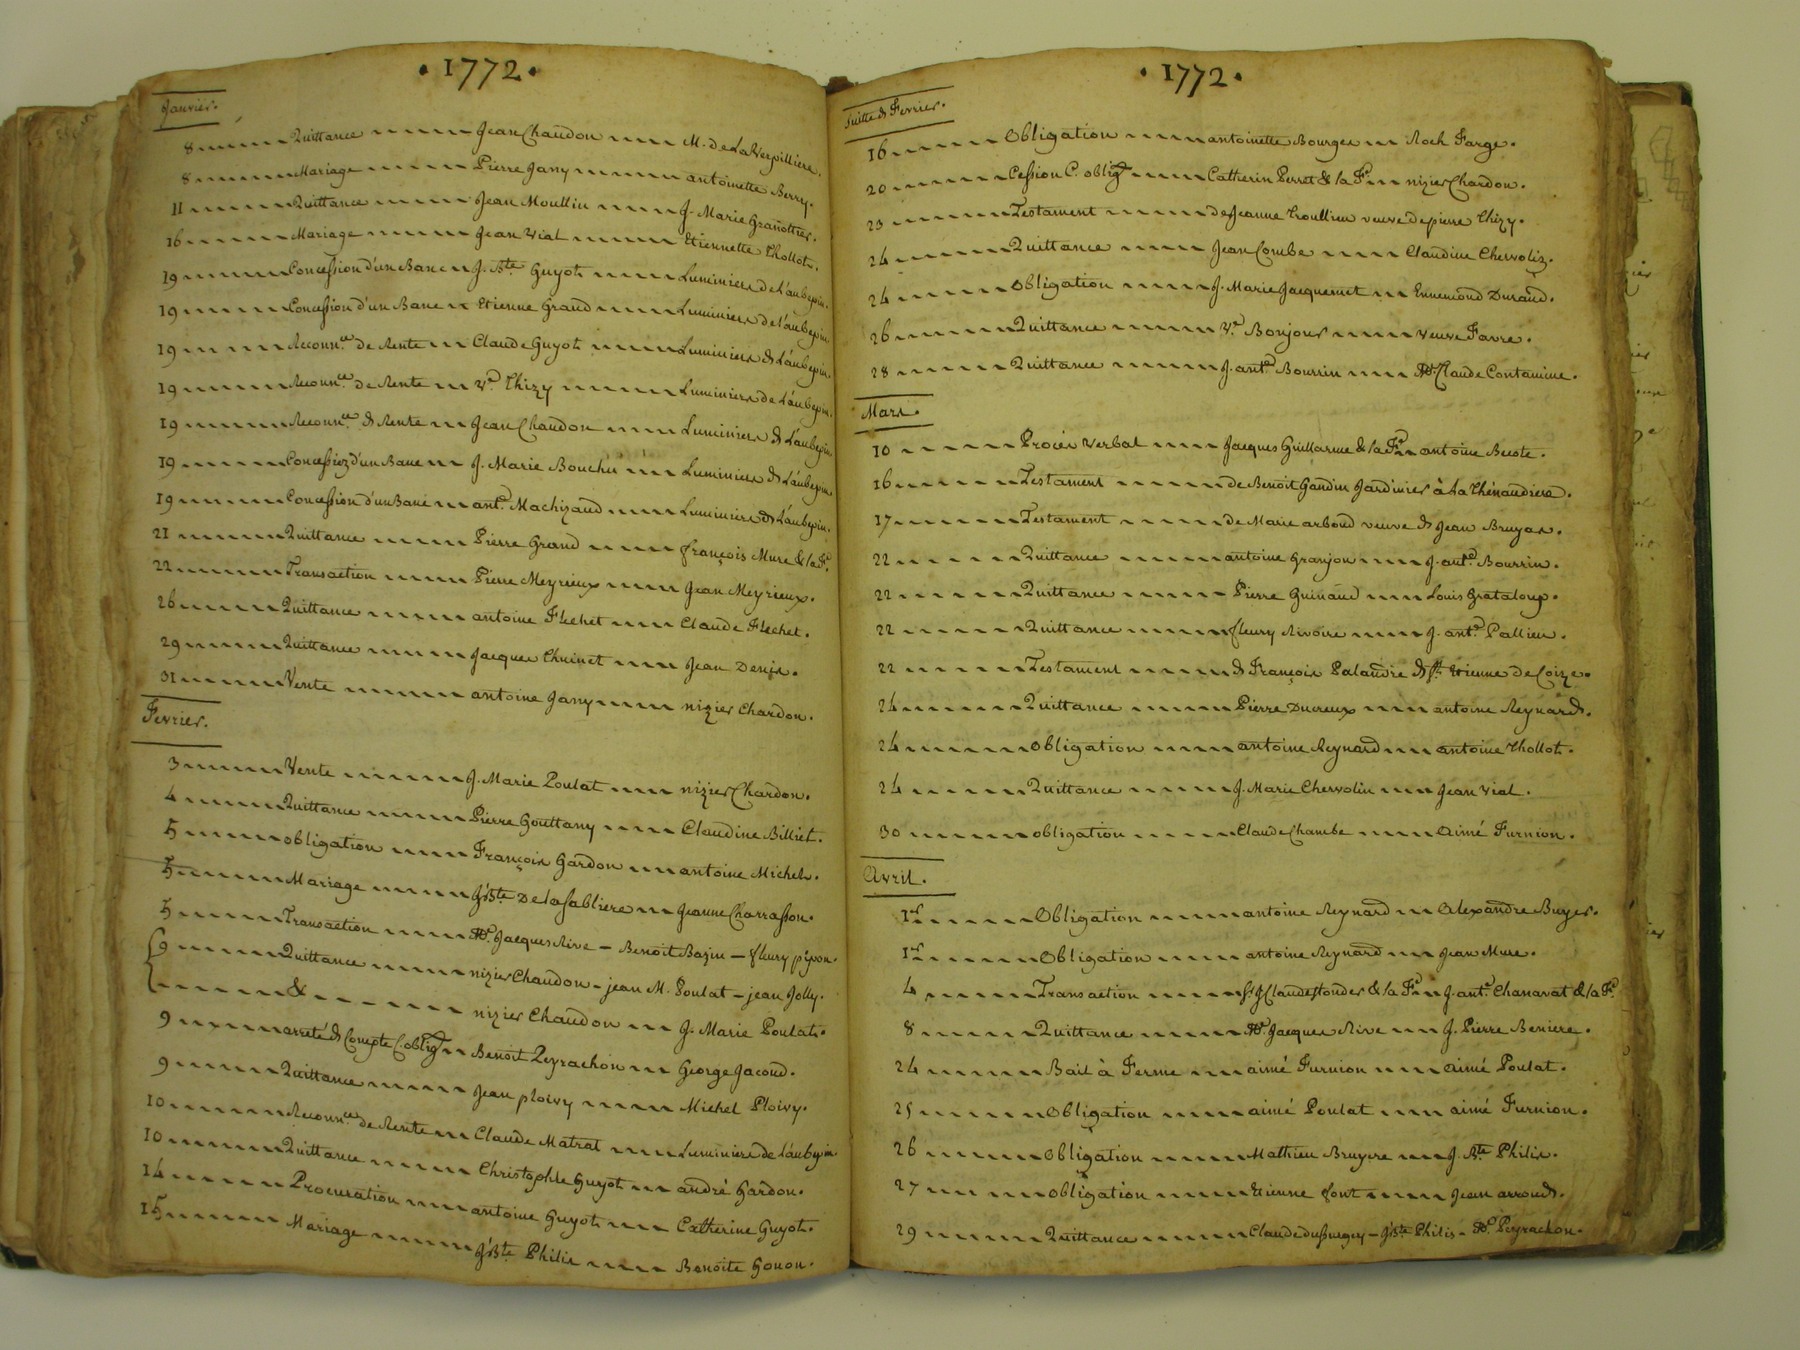 1772
Janvier.
8 Quittance Jean Chaudon M. de La Verpilliere.
8 Mariage Pierre Jany antoinette Berry.
11 Quittance Jean Moullin J. Marie Granottier.
16 Mariage Jean Vial Etiennette Thollot.
19 Concession d'un Banc J. Bte Guyot Luminiers de L'aubepin.
19 Concession d'un Banc Etienne Grand Luminiers de L'aubepin.
19 Reconn.ce de Rente Claude Guyot Luminiers de L'aubepin.
19 Reconn.ce de Rente Ve Thizy Luminiers de L'aubepin.
19 Reconn.ce de Rente Jean Chaudon Luminiers de L'aubepin.
19 Concession d'un Banc J. Marie Bouchu Luminiers de L'aubepin
19 Concession d'un Banc ant.e Machizaud Luminiers de L'aubepin.
21 Quittance Pierre Grand françois Mure & sa fe.
22 Transaction Pierre Meyrieux Jean Meyrieux.
26 Quittance antoine Flechet Claude Flechet.
29 Quittance Jacques Thuinet Jean Denis.
31 Vente antoine Jany nizier Chardon.
Fevrier.
3 Vente J. Marie Poulat nizier Chardon.
4 Quittance Pierre Gouttany Claudine Billiet.
5 obligation François Gardon antoine Michel.
5 Mariage J. Bte De la Sabliere Jeanne Charrasson.
5 Transaction Jacques Rive - Benoit Bazin - fleury pipon.
9 Quittance nizier Chaudon - jean M. Poulat - jean Jolly.
& nizier Chaudon J. Marie Poulat.
9 arreté de Compte C. oblig.on Benoit Peyrachon George Jacoud.
9 Quittance Jean ploivy Michel Ploivy.
10 Reconn.ce de Rente Claude Matrat Luminiers de L'aubepin
10 Quittance Christophle Guyot andré Gardon.
14 Procuration antoine Guyot Catherine Guyot.
15 Mariage J. Bte Philis Benoite Gonon.
1772
Suitte de Fevrier.
16 Obligation antoinette Bourges Roch Farge.
20 Cession C. oblig.on Catherin Perret & sa Fe nizier Chardon.
23 Testament de Jeanne Troullieu veuve de pierre Thizy.
24 Quittance Jean Combe Claudine Chervoliz.
24 Obligation J. Marie Jacquemet Ennemond Durand.
26 Quittance Ve Bonjour veuve Favre.
28 Quittance J. ant.e Bourrin Claude Contamine.
Mars.
10 Procès Verbal Jacques Guillarme & sa Fe antoine Beoste.
16 Testament de Benoit Gandin Jardinier à La Thénaudiere.
17 Testament de Marie arboud veuve de Jean Bruyas.
22 Quittance antoine Granjon J. ant.e Bourrin.
22 Quittance Pierre Guinaud Louis Grataloup.
22 Quittance fleury Rivoire J. ant.e Pallieu.
22 Testament de François Palandre de St. Etienne de Coize.
24 Quittance Pierre Ducreux antoine Reynard.
24 Obligation antoine Reynard antoine Thollot.
24 Quittance J. Marie Chervolin Jean Vial.
30 obligation Claude Chambe Aimé Furnion.
Avril.
1er Obligation antoine Reynard Alexandre Buyer.
1er Obligation antoine Reynard Jean Mure.
4 Transaction J. Claude & sa Fe J. ant.e Chanavat & sa Fe.
8 Quittance Jacques Rive J. Pierre Beniere.
24 Bail à Ferme aimé Furnion aimé Poulat.
25 Obligation aimé Poulat aimé Furnion.
26 Obligation Mathieu Bruyere J. Bte Philis.
27 Obligation Etienne font Jean arroud.
29 Quittance Claude dussurgey - J. Bte Philis - Peyrachon.